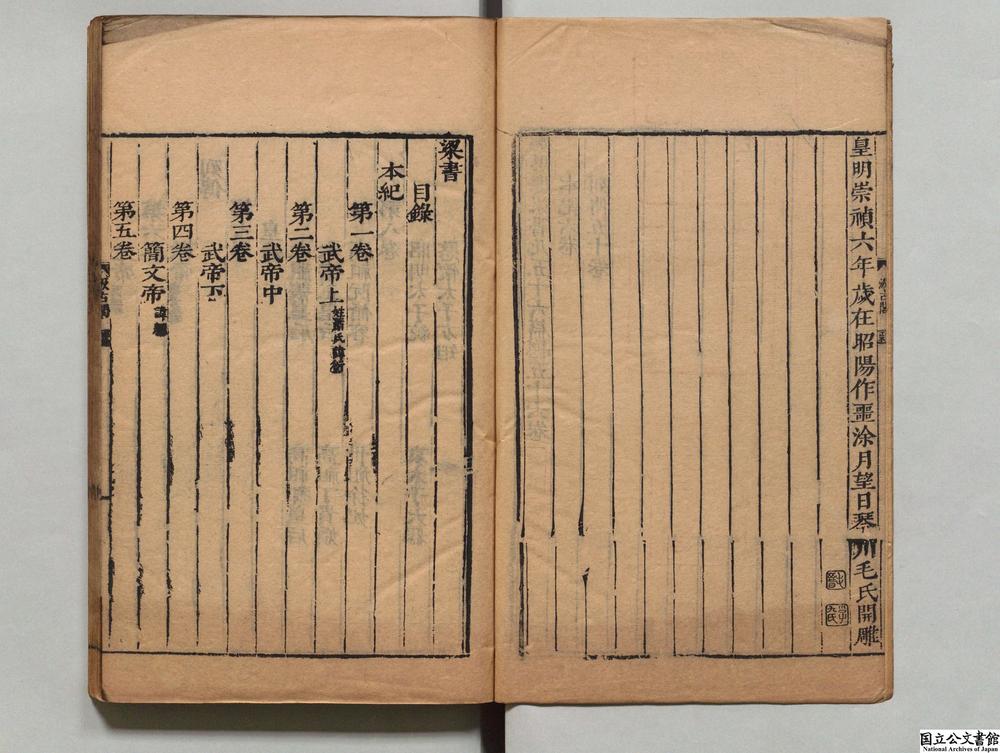 皇明崇禎六年歲在昭陽作噩涂月望日琴川毛氏開雕
汲古閣
梁書
目錄
本紀
第一卷
武帝上 姓蕭氏諱衍
第二卷
武帝中
第三卷
武帝下
第四卷
簡文帝 諱綱
第五卷
汲古閣
国立公文書館
National Archives of Japan